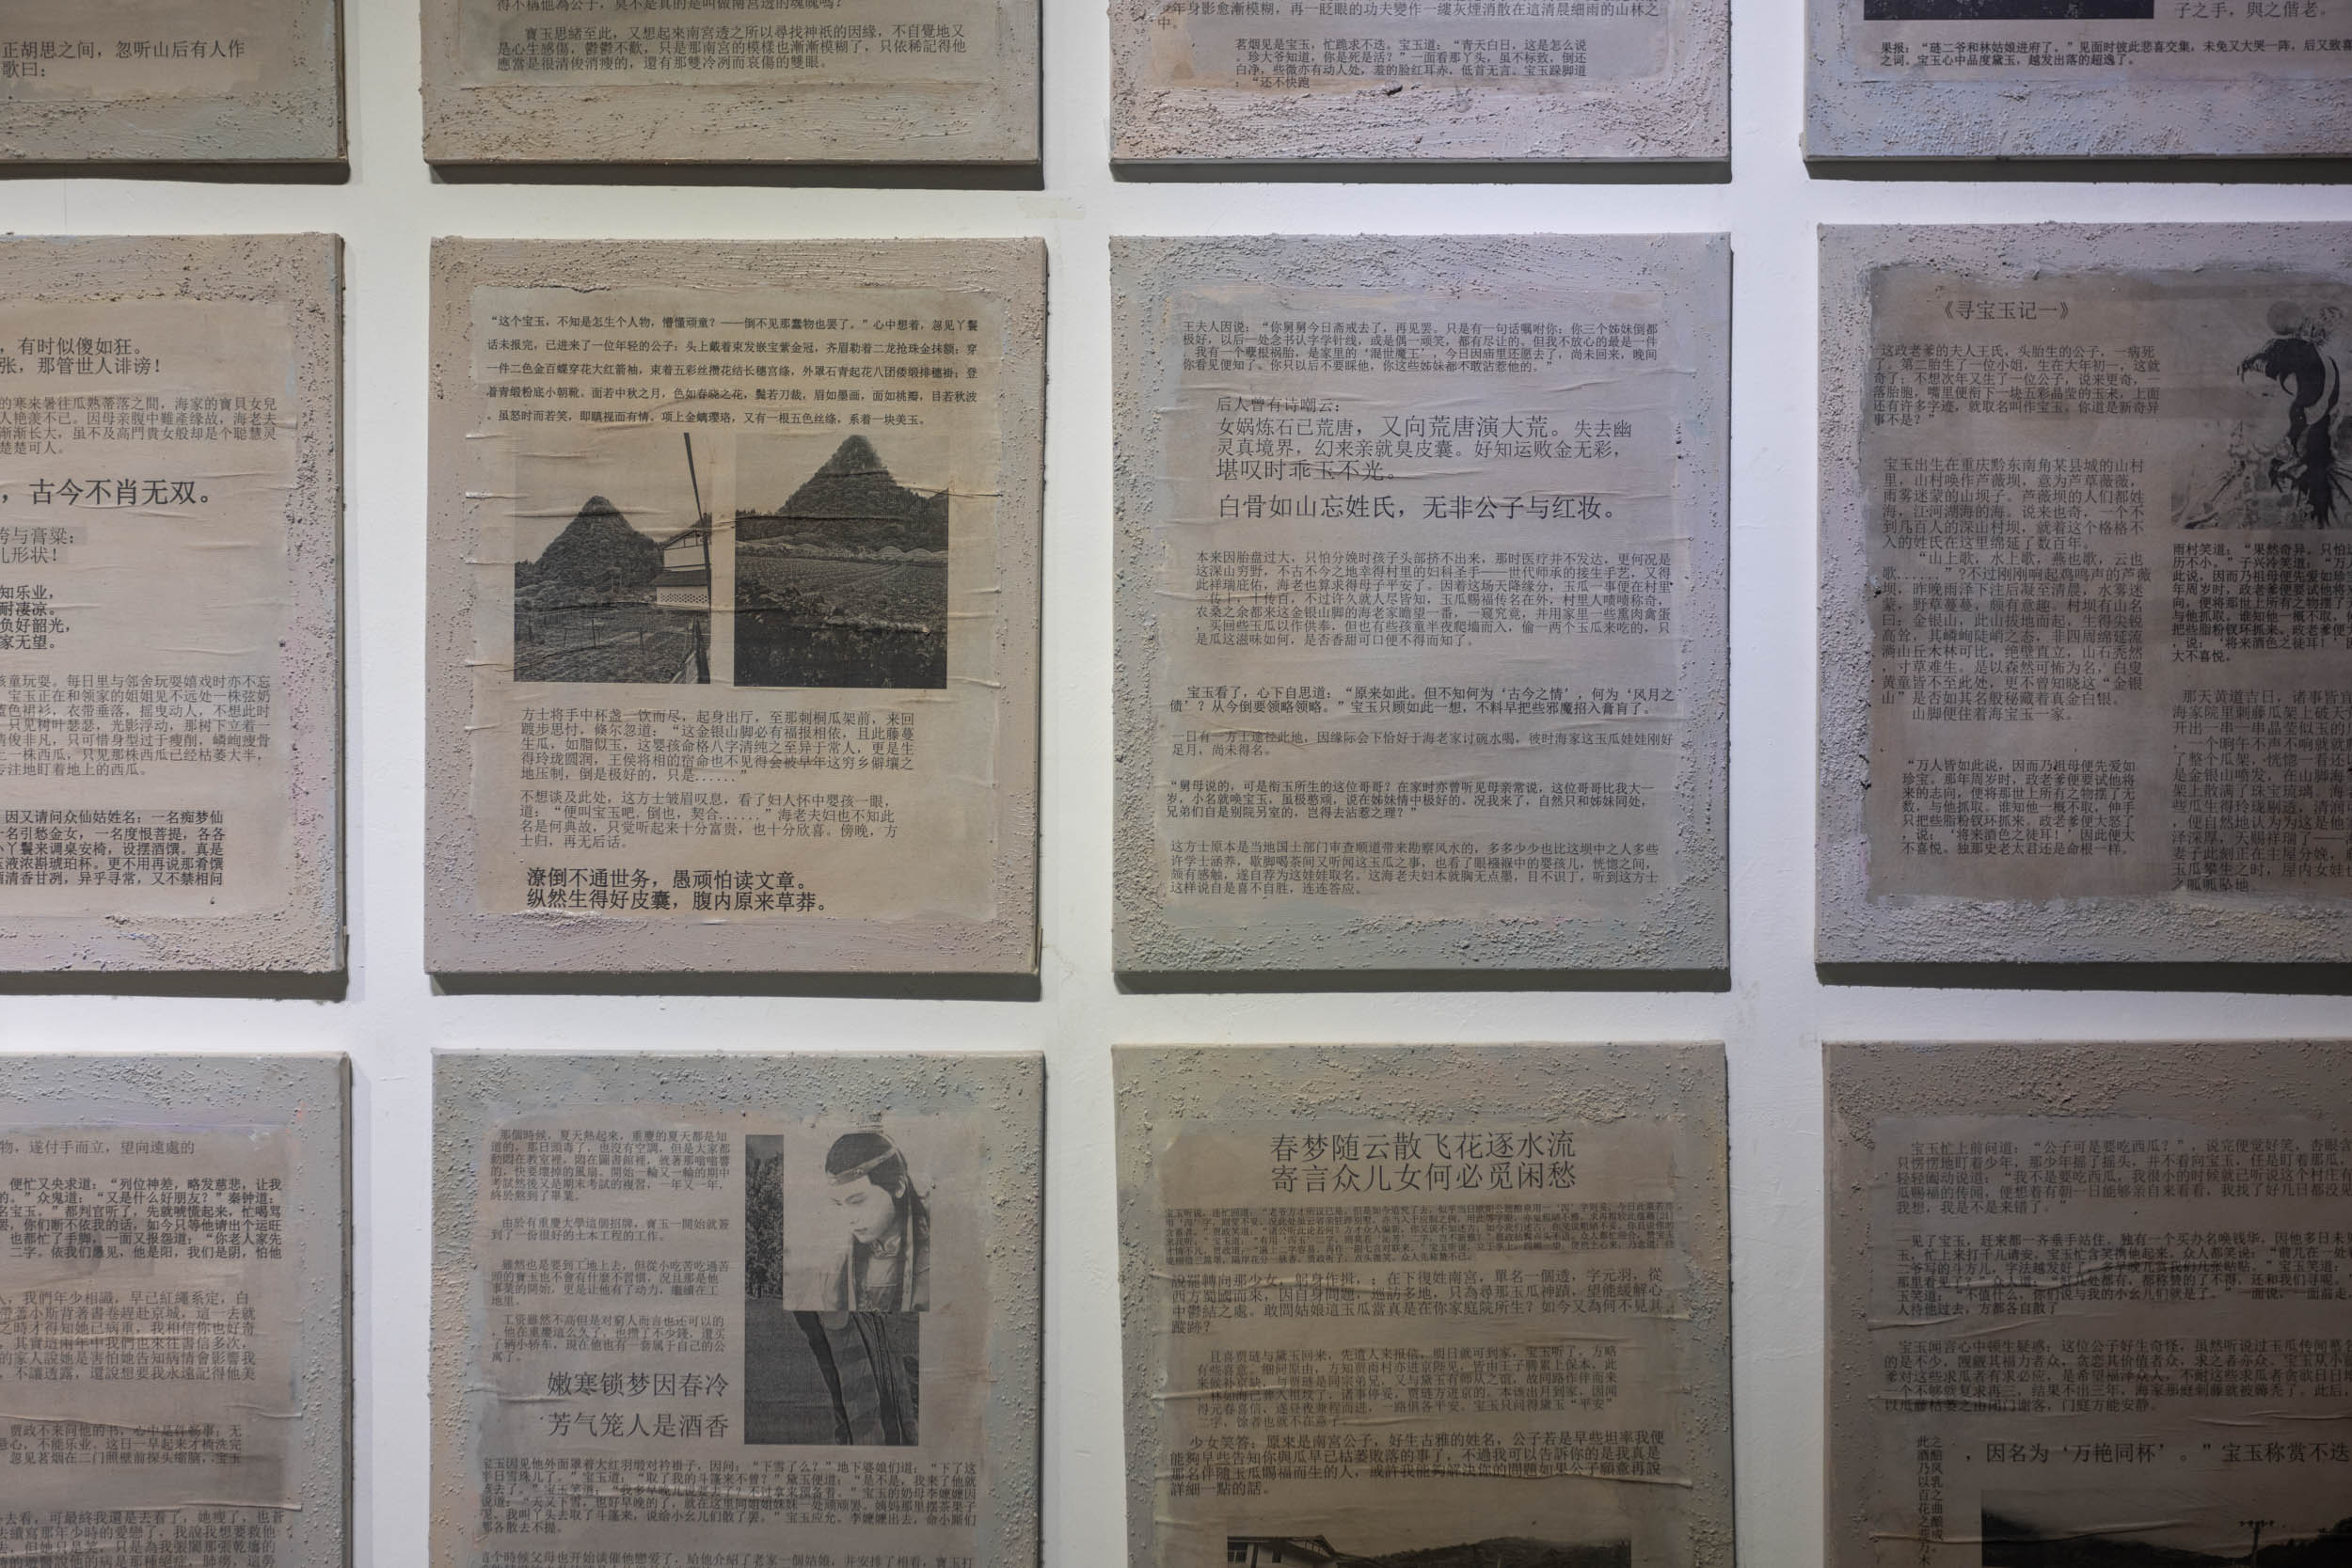 正胡思之间，忽听山后有人作
歌曰：
寶玉思緒至此，又想起來南宮透之所以尋找神祇的因緣，不自覺地又
是心生感傷，鬱鬱不歡，只是那南宮的模樣也漸漸模糊了，只依稀記得他
應當是很清俊消瘦的，還有那雙冷冽而哀傷的雙眼。
年身影愈漸模糊，再一眨眼的功夫變作一縷灰煙消散在這清晨細雨的山林之
中。
茗烟见是宝玉，忙跪求不迭。宝玉道：“青天白日，这是怎么说
。珍大爷知道，你是死是活？”一面看那丫头，虽不标致，倒还
白净，些微亦有动人处，羞的脸红耳赤，低首无言。宝玉跺脚道
：“还不快跑
子之手，與之偕老。
果报：“琏二爷和林姑娘进府了。”见面时彼此悲喜交集，未免又大哭一阵，后又致喜
之词。宝玉心中品度黛玉，越发出落的超逸了。
，有时似傻如狂。
张，那管世人诽谤！
的寒来暑往瓜熟蒂落之间，海家的寶貝女兒
人艳羡不已。因母亲腹中難產缘故，海老夫
渐渐长大，虽不及高門貴女般却是个聪慧灵
楚楚可人。
，古今不肖无双。
袴与膏粱：
儿形状！
知乐业，
耐凄凉。
负好韶光，
家无望。
孩童玩耍。每日里与邻舍玩耍嬉戏时亦不忘
宝玉正在和领家的姐姐见不远处一株弦奶
蓝色裙衫，衣带垂落，摇曳动人，不想此时
只见树叶瑟瑟，光影浮动，那树下立着一
清俊非凡，只可惜身型过于瘦削，嶙峋瘦骨
上一株西瓜。只见那株西瓜已经枯萎大半，
专注地盯着地上的西瓜。
因又请问众仙姑姓名：一名痴梦仙
一名引愁金女，一名度恨菩提，各各
小丫鬟来调桌安椅，设摆酒馔。真是
玉液浓斟琥珀杯。更不用再说那肴馔
酒清香甘冽，异乎寻常，又不禁相问
“这个宝玉，不知是怎生个人物，懵懂顽童？——倒不见那蠢物也罢了。”心中想着，忽见丫鬟
话未报完，已进来了一位年轻的公子：头上戴着束发嵌宝紫金冠，齐眉勒着二龙抢珠金抹额；穿
一件二色金百蝶穿花大红箭袖，束着五彩丝攒花结长穗宫绦，外罩石青起花八团倭缎排穗褂；登
着青缎粉底小朝靴。面若中秋之月，色如春晓之花，鬓若刀裁，眉如墨画，面如桃瓣，目若秋波
。虽怒时而若笑，即瞋视而有情。项上金螭璎珞，又有一根五色丝绦，系着一块美玉。
方士将手中杯盏一饮而尽，起身出厅，至那刺桐瓜架前，来回
踱步思忖，倏尔忽道：“这金银山脚必有福报相依，且此藤蔓
生瓜，如脂似玉，这婴孩命格八字清纯之至异于常人，更是生
得玲珑圆润，王侯将相的宿命也不见得会被早年这穷乡僻壤之
地压制，倒是极好的，只是......”
不想谈及此处，这方士皱眉叹息，看了妇人怀中婴孩一眼，
道：“便叫宝玉吧，倒也，契合......”海老夫妇也不知此
名是何典故，只觉听起来十分富贵，也十分欣喜。傍晚，方
士归，再无后话。
潦倒不通世务，愚顽怕读文章。
纵然生得好皮囊，腹内原来草莽。
王夫人因说：“你舅舅今日斋戒去了，再见罢。只是有一句话嘱咐你：你三个姊妹倒都
极好，以后一处念书认字学针线，或是偶一顽笑，都有尽让的。但我不放心的最是一件
：我有一个孽根祸胎，是家里的‘混世魔王’，今日因庙里还愿去了，尚未回来，晚间
你看见便知了。你只以后不要睬他，你这些姊妹都不敢沾惹他的。”
后人曾有诗嘲云：
女娲炼石已荒唐，又向荒唐演大荒。失去幽
灵真境界，幻来亲就臭皮囊。好知运败金无彩，
堪叹时乖玉不光。
白骨如山忘姓氏，无非公子与红妆。
本来因胎盘过大，只怕分娩时孩子头部挤不出来，那时医疗并不发达，更何况是
这深山穷野，不古不今之地幸得村里的妇科圣手——世代师承的接生手艺，又得
此祥瑞庇佑，海老也算求得母子平安了。因着这场天降缘分，玉瓜一事便在村里
一传十，十传百，不过许久就人尽皆知，玉瓜赐福传名在外，村里人啧啧称奇，
农桑之余都来这金银山脚的海老家瞻望一番，一窥究竟，并用家里一些熏肉禽蛋
，买回些玉瓜以作供奉，但也有些孩童半夜爬墙而入，偷一两个玉瓜来吃的，只
是瓜这滋味如何，是否香甜可口便不得而知了。
宝玉看了，心下自思道：“原来如此。但不知何为‘古今之情’，何为‘风月之
债’？从今倒要领略领略。”宝玉只顾如此一想，不料早把些邪魔招入膏肓了。
一日有一方士途径此地，因缘际会下恰好于海老家讨碗水喝，彼时海家这玉瓜娃娃刚好
足月，尚未得名。
“舅母说的，可是衔玉所生的这位哥哥？在家时亦曾听见母亲常说，这位哥哥比我大一
岁，小名就唤宝玉，虽极憨顽，说在姊妹情中极好的。况我来了，自然只和姊妹同处，
兄弟们自是别院另室的，岂得去沾惹之理？”
这方士原本是当地国土部门审查顺道带来勘察风水的，多多少少也比这坝中之人多些
许学士涵养，歇脚喝茶间又听闻这玉瓜之事，也看了眼襁褓中的婴孩儿，恍惚之间，
颇有感触，遂自荐为这娃娃取名。这海老夫妇本就胸无点墨，目不识丁，听到这方士
这样说自是喜不自胜，连连答应。
《寻宝玉记一》
这政老爹的夫人王氏，头胎生的公子，一病死
了。第二胎生了一位小姐，生在大年初一，这就
奇了；不想次年又生了一位公子，说来更奇，一
落胎胞，嘴里便衔下一块五彩晶莹的玉来，上面
还有许多字迹，就取名叫作宝玉。你道是新奇异
事不是？”
宝玉出生在重庆黔东南角某县城的山村
里，山村唤作芦薇坝，意为芦草薇薇，
雨雾迷蒙的山坝子。芦薇坝的人们都姓
海，江河湖海的海。说来也奇，一个不
到几百人的深山村坝，就着这个格格不
入的姓氏在这里绵延了数百年。
“山上歌，水上歌，燕也歌，云也
歌......”?不过刚刚响起鸡鸣声的芦薇
坝，昨晚雨泽下注后凝至清晨，水雾迷
蒙，野草蔓蔓，颇有意趣。村坝有山名
曰：金银山，此山拔地而起，生得尖锐
高耸，其嶙峋陡峭之态，非四周绵延流
淌山丘木林可比，绝壁直立，山石秃然
，寸草难生。是以森然可怖为名，白叟
黄童皆不至此处，更不曾知晓这“金银
山”是否如其名般秘藏着真金白银。
山脚便住着海宝玉一家。
“万人皆如此说，因而乃祖母便先爱如
珍宝。那年周岁时，政老爹便要试他将
来的志向，便将那世上所有之物摆了无
数，与他抓取。谁知他一概不取，伸手
只把些脂粉钗环抓来。政老爹便大怒了
，说：‘将来酒色之徒耳！’因此便大
不喜悦。独那史老太君还是命根一样。
雨村笑道：“果然奇异，只怕
历不小。”子兴冷笑道：“万
此说，因而乃祖母便先爱如珍
年周岁时，政老爹便要试他将
向，便将那世上所有之物摆了
与他抓取。谁知他一概不取，
把些脂粉钗环抓来。政老爹便
，说：‘将来酒色之徒耳！’因
大不喜悦。
那天黄道吉日，诸事皆宜
海家院里刺藤瓜架上破天
开出一串一串晶莹似玉的
，一个晌午不声不响就就
了整个瓜架，恍惚一看还以
是金银山喷发，在山脚海
架上散满了珠宝琉璃。海
些瓜生得玲珑剔透，清润
，便自然地认为为这是他
泽深厚，天赐祥瑞了。海
妻子此刻正在主屋分娩，
玉瓜攀生之时，屋内女娃也
之呱呱坠地。
物，遂付手而立，望向遠處的
便忙又央求道：“列位神差，略发慈悲，让我
的。”众鬼道：“又是什么好朋友？”秦钟道：
名宝玉。”都判官听了，先就唬慌起来，忙喝骂
罢，你们断不依我的话，如今只等他请出个运旺
也都忙了手脚，一面又报怨道：“你老人家先
二字。依我们愚见，他是阳，我们是阴，怕他
人，我們年少相識，早已紅繩系定，白
帶著小斯背著書卷趕赴京城，這一去就
之時才得知她已病重，我相信你也好奇
，其實這兩年中我們也來往書信多次，
的家人說她是害怕她告知病情會影響我
，不讓透露，還說想要我永遠記得他美
贾政不来问他的书，心中是件畅事；无
悬心，不能乐业。这日一早起来才梳洗完
忽见茗烟在二门照壁前探头缩脑，宝玉
去看，可最終我還是去看了，她瘦了，也蒼
去續寫那年少時的愛戀了，我說我想要救他
那個時候，夏天熱起來，重慶的夏天都是知
道的，那日頭毒了，也沒有空調，但是大家都
動悶在教室裡，悶在圖書館裡，就著那嗡嗡響
的，快要壞掉的風扇，開始一輪又一輪的期中
考試然後又是期末考試的複習，一年又一年，
終於熬到了畢業。
由於有重慶大學這個招牌，寶玉一開始就簽
到了一份很好的土木工程的工作。
雖然也是要到工地上去，但從小吃苦吃過苦
頭的寶玉也不會有什麼不習慣，況且那是他
事業的開始，更是让他有了动力，繼續在工
地里。
工资雖然不高但是对窮人而言也还可以的
，他在重慶這么久了，也攒了不少錢，還买
了辆小轿车，現在他也有一套属于自己的公
寓了。
嫩寒锁梦因春冷
芳气笼人是酒香
宝玉因见他外面罩着大红羽缎对衿褂子，因问：“下雪了么？”地下婆娘们道：“下了这
半日雪珠儿了。”宝玉道：“取了我的斗篷来不曾？”黛玉便道：“是不是，我来了他就
该去了。”宝玉笑道：“我多早晚儿说要去了？不过拿来预备着。”宝玉的奶母李嬷嬷因
说道：“天又下雪，也好早晚的了，就在这里同姐姐妹妹一处顽顽罢。姨妈那里摆茶果子
呢。我叫丫头去取了斗篷来，说给小幺儿们散了罢。”宝玉应允。李嬷嬷出去，命小厮们
都各散去不提。
這个時候父母也开始谈催他戀爱了，给他介紹了老家一個姑娘，并安排了相看，寶玉打
春梦随云散飞花逐水流
寄言众儿女何必觅闲愁
說罷轉向那少女，躬身作揖，：在下復姓南宮，單名一個透，字元羽，從
西方蜀國而來，因自身問題，巡訪多地，只為尋那玉瓜神蹟，望能緩解心
中鬱結之處。敢問姑娘這玉瓜當真是在你家庭院所生？如今又為何不見其
蹤跡？
且喜贾琏与黛玉回来，先遣人来报信，明日就可到家，宝玉听了，方略
有些喜意。细问原由，方知贾雨村亦进京陛见，皆由王子腾累上保本，此
来候补京缺，与贾琏是同宗弟兄，又与黛玉有师从之谊，故同路作伴而来
。林如海已葬入祖坟了，诸事停妥，贾琏方进京的。本该出月到家，因闻
得元春喜信，遂昼夜兼程而进，一路俱各平安。宝玉只问得黛玉“平安”
二字，馀者也就不在意了。
少女笑答：原來是南宮公子，好生古雅的姓名，公子若是早些坦率我便
能夠早些告知你與瓜早已枯萎敗落的事了，不過我可以告訴你的是我真是
那名伴隨玉瓜賜福而生的人，或許我能夠解決你的問題如果公子願意再說
詳細一點的話。
宝玉忙上前问道：“公子可是要吃西瓜？”，说完便觉好笑，杏眼含
只愣愣地盯着少年，那少年摇了摇头，并不看向宝玉，任是盯着那瓜，
轻轻蠕动说道：“我不是要吃西瓜，我很小的时候就已听说这个村庄的
瓜赐福的传闻，便想着有朝一日能够亲自来看看，我找了好几日都没见
我想，我是不是来错了。”
一见了宝玉，赶来都一齐垂手站住。独有一个买办名唤钱华，因他多日未见
玉，忙上来打千儿请安，宝玉忙含笑携他起来。众人都笑说：“前儿在一处看
二爷写的斗方儿，字法越发好了，多早晚儿赏我们几张贴贴。”宝玉笑道：“
那里看见了？”众人道：“好几处都有，都称赞的了不得，还和我们寻呢。”
玉笑道：“不值什么，你们说与我的小幺儿们就是了。”一面说，一面前走，
人待他过去，方都各自散了
宝玉闻言心中顿生疑惑：这位公子好生奇怪，虽然听说过玉瓜传闻慕名
的是不少，觊觎其福力者众，贪恋其价值者众，求之者亦众。宝玉从小
爹对这些求瓜者有求必应，是希望福泽众人，不耐这些求瓜者贪欲日日
一个不够就复求再三，结果不出三年，海家那庭刺藤就被薅秃了。此后
以瓜藤枯萎之由闭门谢客，门庭方能安静。
，因名为‘万艳同杯’。”宝玉称赏不迭